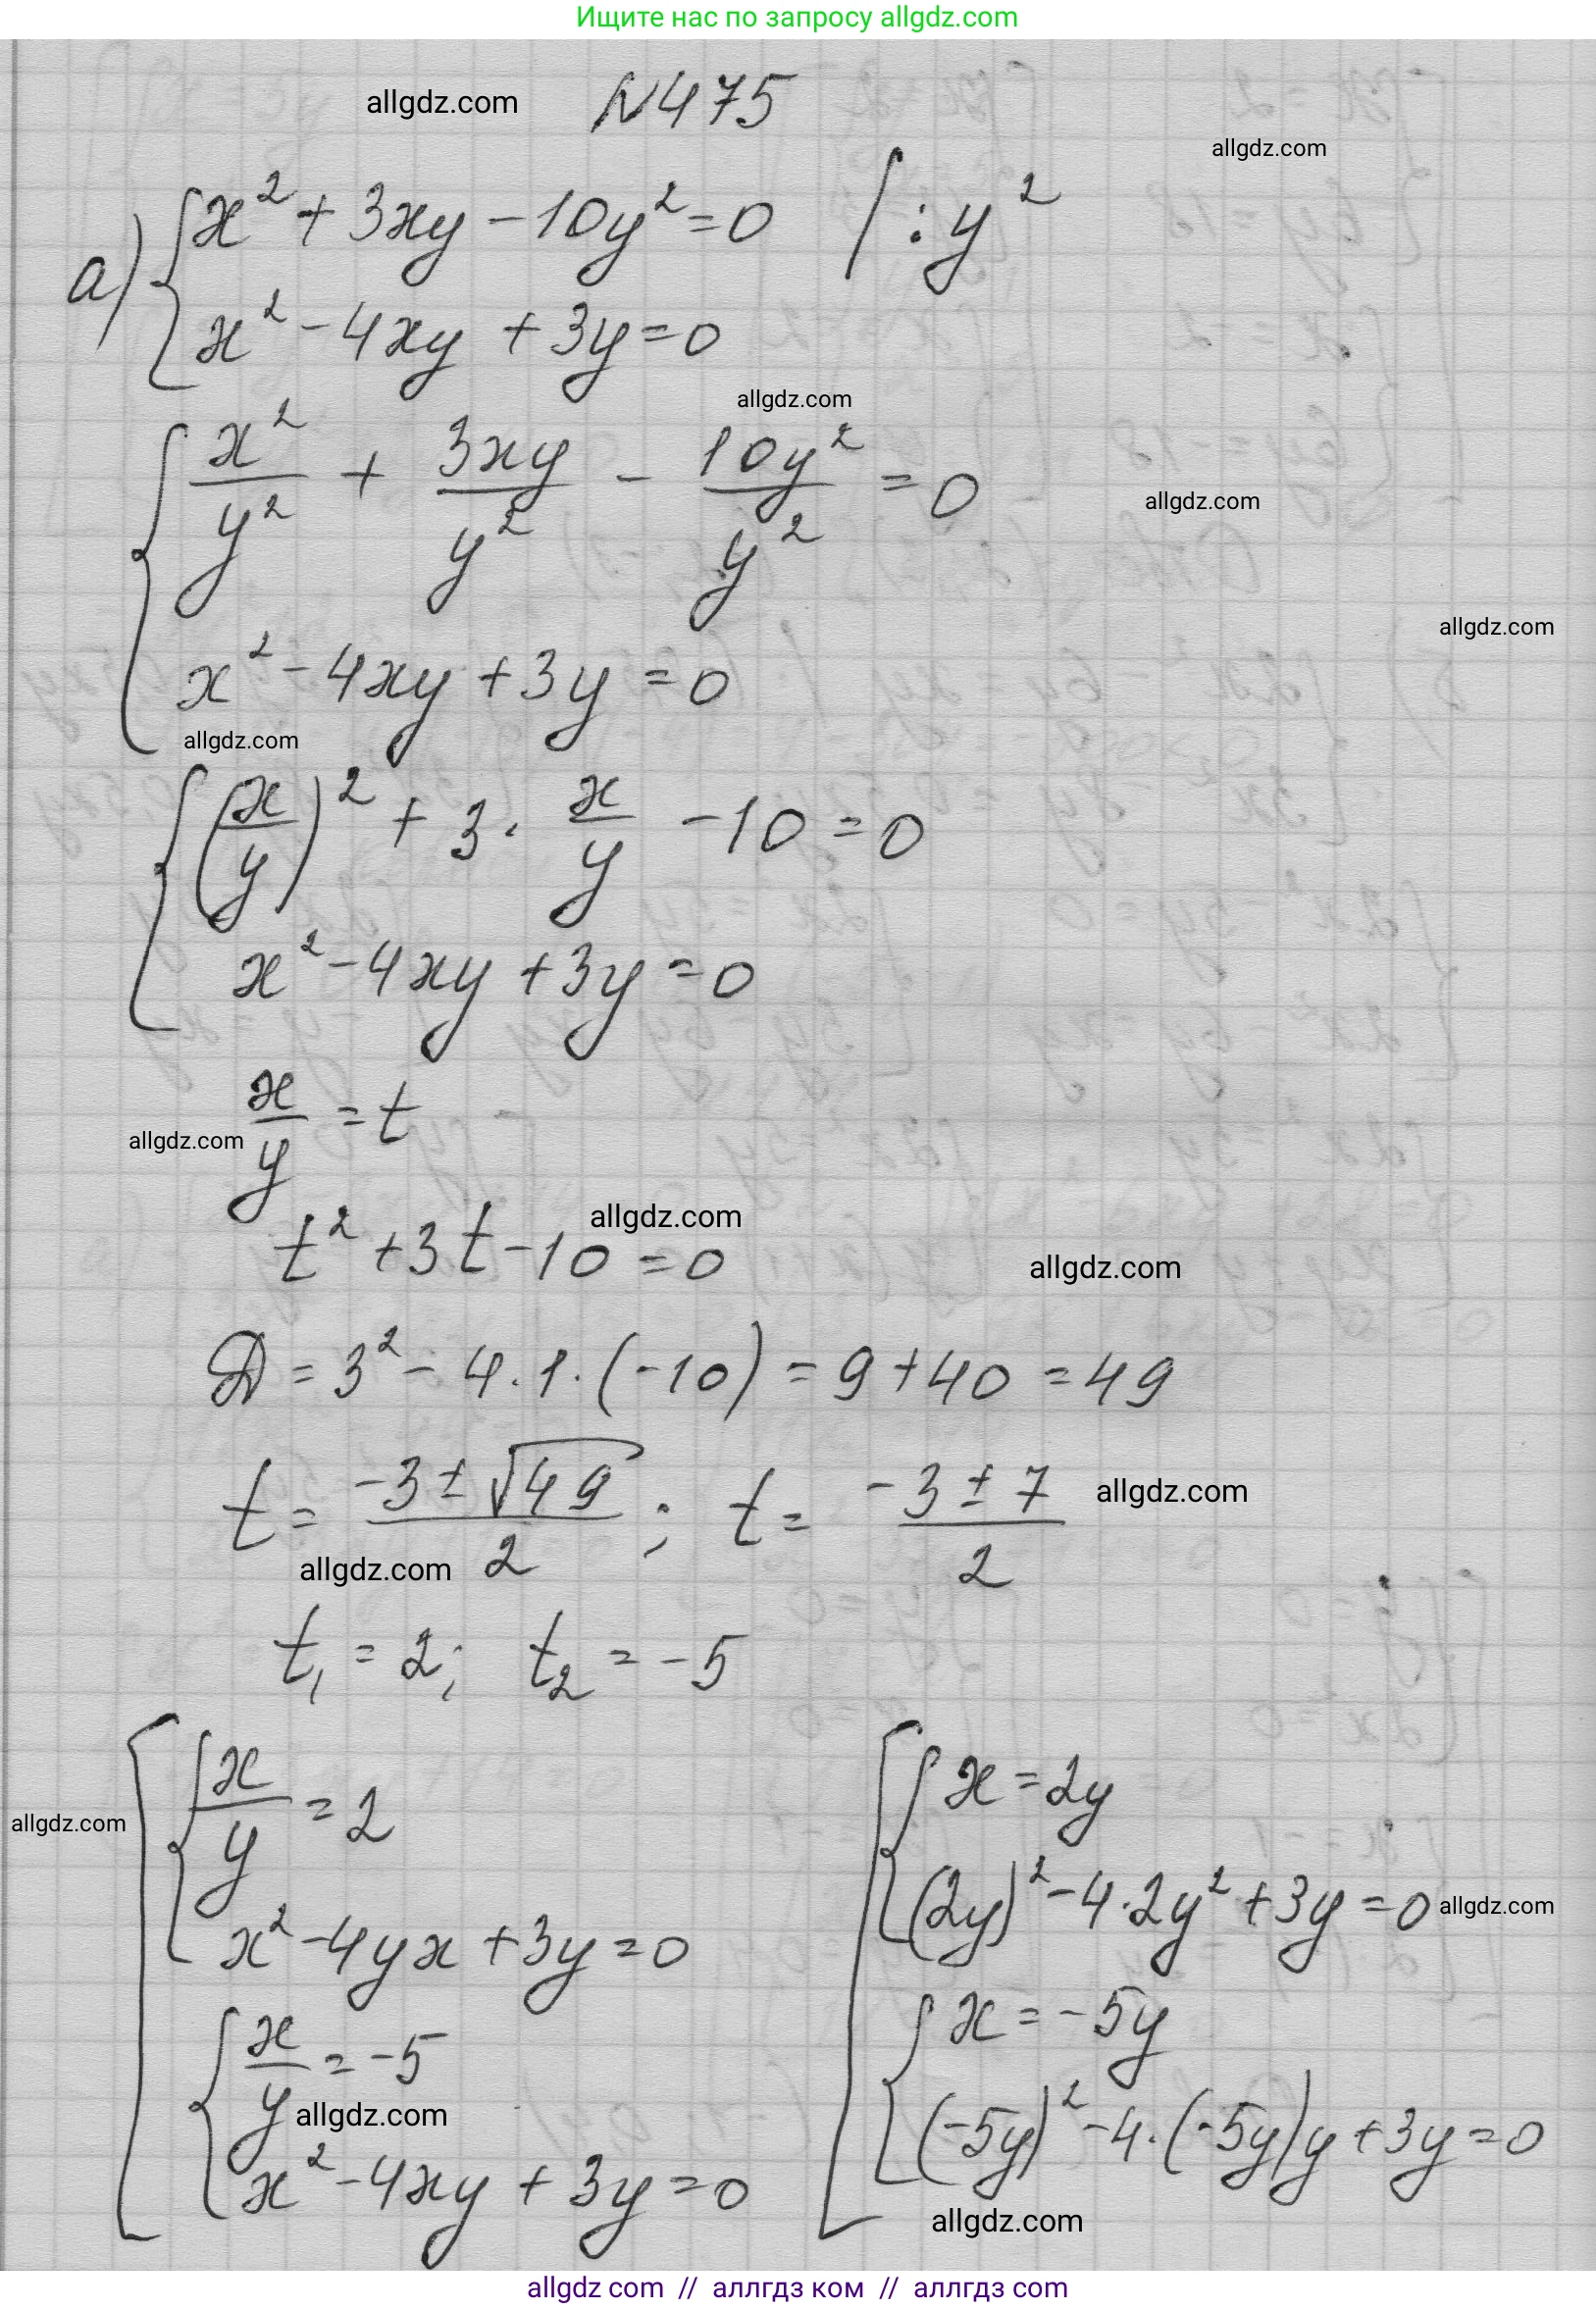 Ищите нас по запросу allgdz.com
allgdz.com
№475
allgdz.com
а) { x² + 3xy - 10y² = 0 | : y²
x² - 4xy + 3y = 0
allgdz.com
{ x²/y² + 3xy/y² - 10y²/y² = 0
allgdz.com
allgdz.com
x² - 4xy + 3y = 0
allgdz.com
{ (x/y)² + 3 · x/y - 10 = 0
x² - 4xy + 3y = 0
x/y = t
allgdz.com
allgdz.com
t² + 3t - 10 = 0
allgdz.com
D = 3² - 4 · 1 · (-10) = 9 + 40 = 49
t = (-3 ± √49)/2 ; t = (-3 ± 7)/2
allgdz.com
allgdz.com
t₁ = 2; t₂ = -5
[ { x/y = 2
allgdz.com
x² - 4yx + 3y = 0
{ x/y = -5
allgdz.com
x² - 4xy + 3y = 0
[ { x = 2y
(2y)² - 4 · 2y² + 3y = 0
allgdz.com
{ x = -5y
(-5y)² - 4 · (-5y)y + 3y = 0
allgdz.com
allgdz com // аллгдз ком // аллгдз com